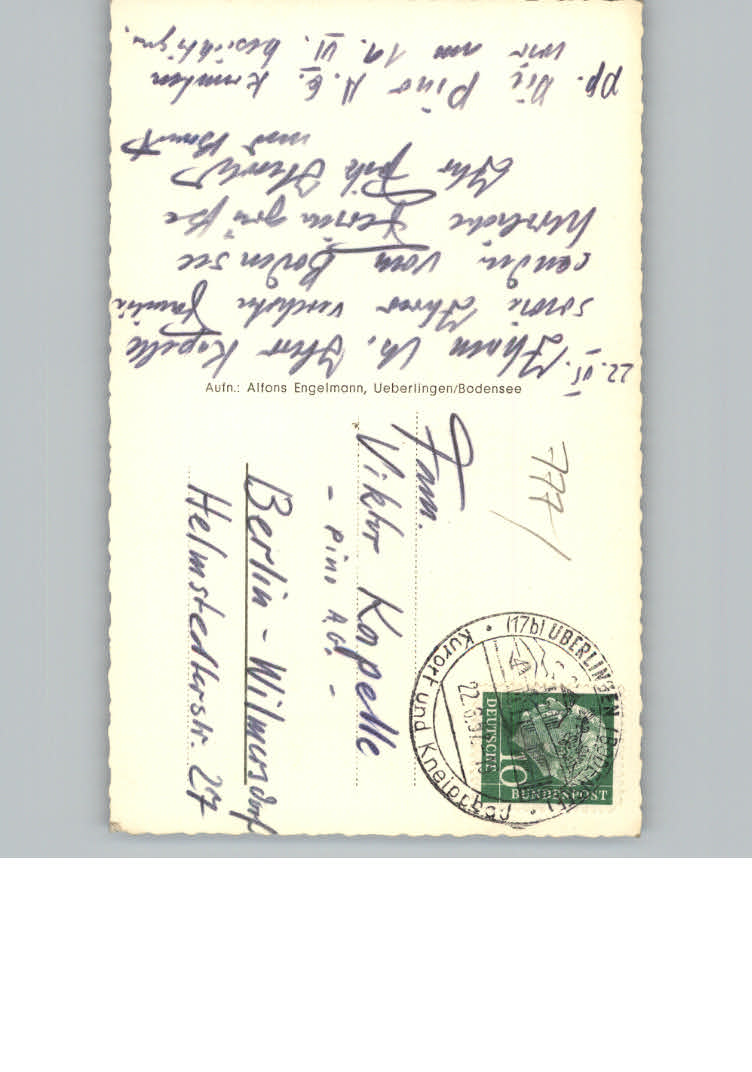 22. VI.
Ihnen, lb. Herr Kapelle
sowie Ihrer verehrten Familie
senden vom Bodensee
herzliche Feriengrüße
Ihr Fritz
und Braut
pp. Die Pino A.G. konnten
wir am 19. VI. besichtigen.
Aufn.: Alfons Engelmann, Ueberlingen/Bodensee
777
Fam.
Viktor Kapelle
- Pino A.G. -
Berlin - Wilmersdorf
Helmstedterstr. 27
(17b) ÜBERLINGEN (BODENSEE)
Kurort und Kneippbad
22.6.5
DEUTSCHE
BUNDESPOST
10